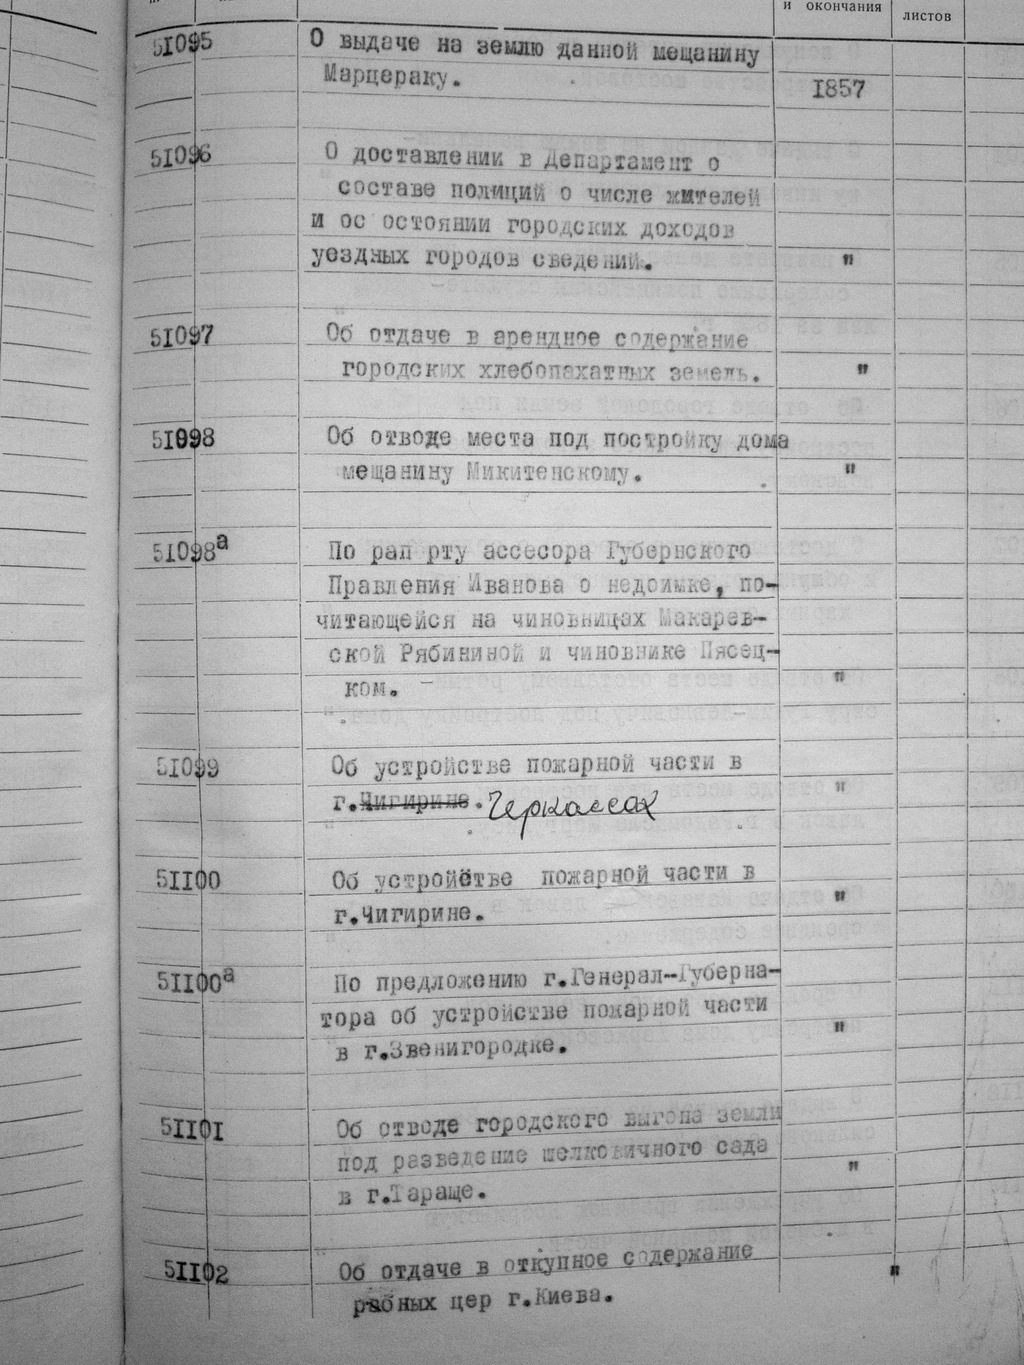 и окончания
листов
51095 О выдаче на землю данной мещанину
Марцераку.
1857
51096 О доставлении в Департамент о
составе полиций о числе жителей
и ос остоянии городских доходов
уездных городов сведений. "
51097 Об отдаче в арендное содержание
городских хлебопахатных земель. "
51098 Об отводе места под постройку дома
мещанину Микитенскому. "
51098а По рап рту ассесора Губернского
Правления Иванова о недоимке, по-
читающейся на чиновницах Макарев-
ской Рябининой и чиновнике Пясец-
ком. "
51099 Об устройстве пожарной части в
г.Чигирине. Черкассах "
51100 Об устройстве пожарной части в
г.Чигирине. "
51100а По предложению г.Генерал-Губерна-
тора об устройстве пожарной части
в г.Звенигородке. "
51101 Об отводе городского выгона земли
под разведение шелковичного сада
в г.Тараще. "
51102 Об отдаче в откупное содержание
рабных цер г.Киева. "